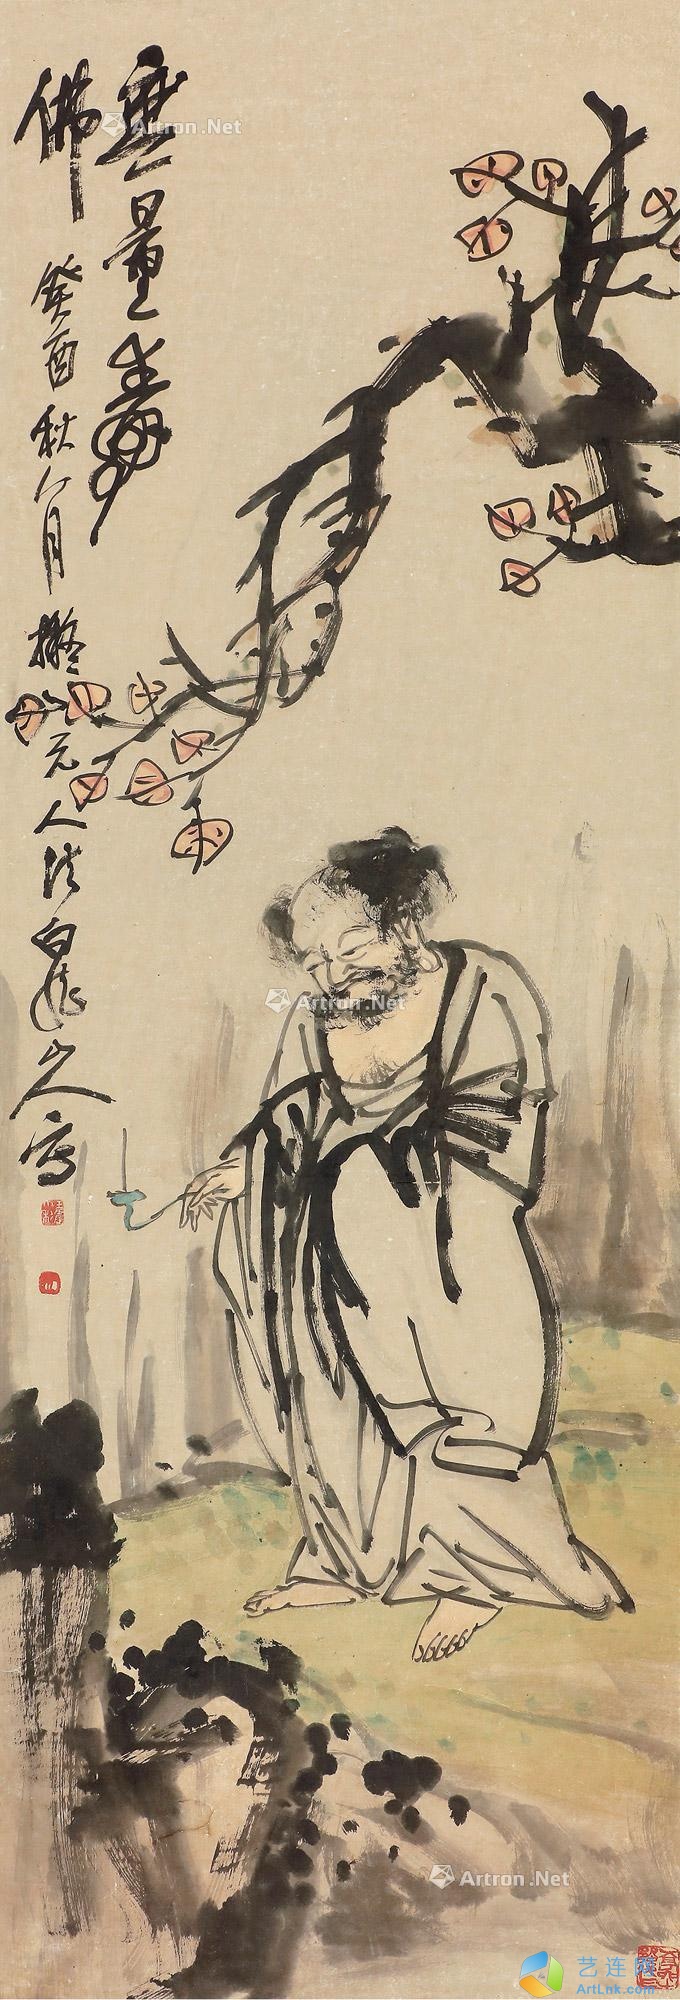 無量壽
佛
癸酉秋八月擬元人法白龍山人寫
Artron.Net
Artron.Net
Artron.Net
艺连网
ArtLnk.com